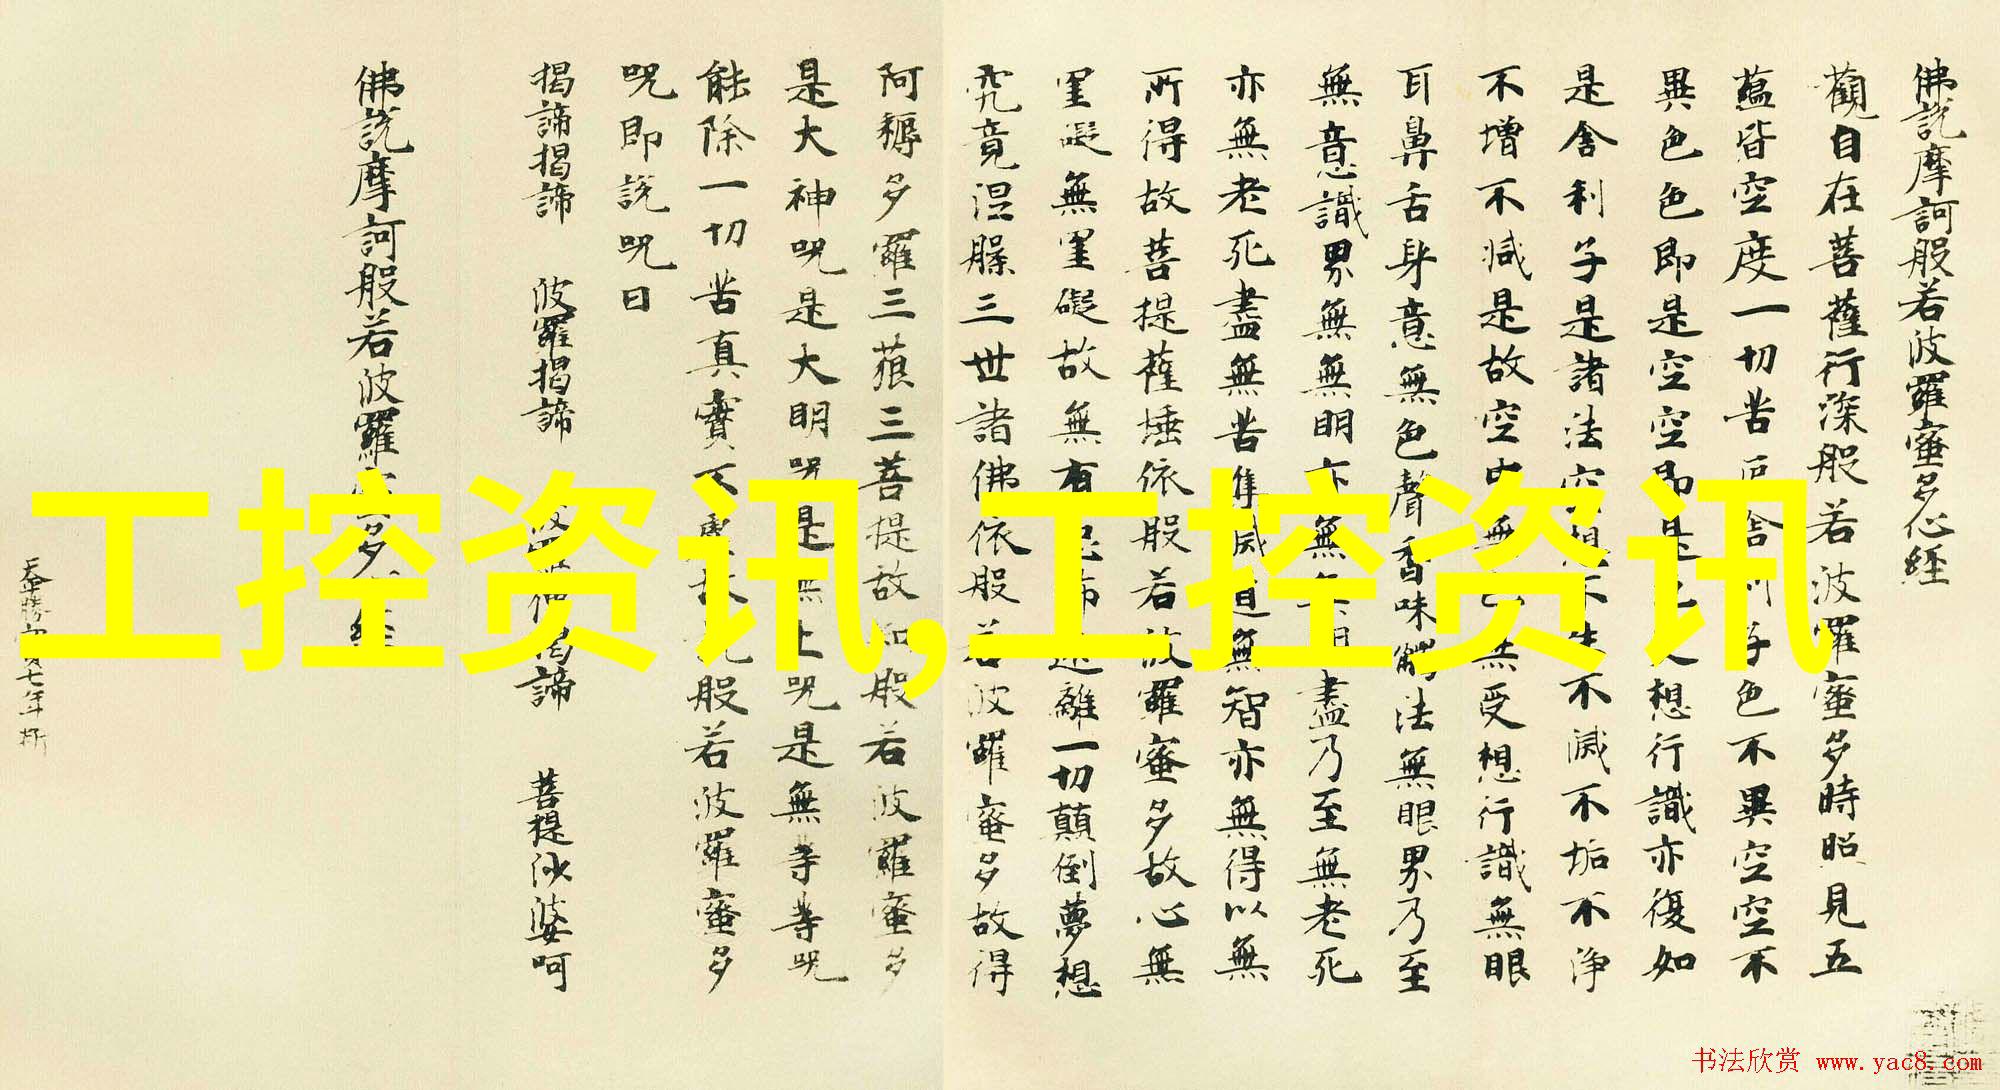 佛說摩訶般若波羅蜜多心經
觀自在菩薩行深般若波羅蜜多時照見五
蘊皆空度一切苦厄舍利子色不異空空不
異色色即是空空即是色受想行識亦復如
是舍利子是諸法空想不生不滅不垢不淨
不增不減是故空中無色無受想行識無眼
耳鼻舌身意無色聲香味觸法無眼界乃至
無意識界無無明亦無無明盡乃至無老死
亦無老死盡無苦集滅道無智亦無得以無
所得故菩提薩埵依般若波羅蜜多故心無
罣礙無罣礙故無有恐怖遠離一切顛倒夢想
究竟涅槃三世諸佛依般若波羅蜜多故得
阿耨多羅三藐三菩提故知般若波羅蜜多
是大神呪是大明呪是無上呪是無等等呪
能除一切苦真實不虛故說般若波羅蜜多
呪即說呪曰
揭諦揭諦 波羅揭諦 波羅僧揭諦 菩提沙婆呵
佛說摩訶般若波羅蜜多心經
工控资讯,工控资讯
书法欣赏 www.yac8.com